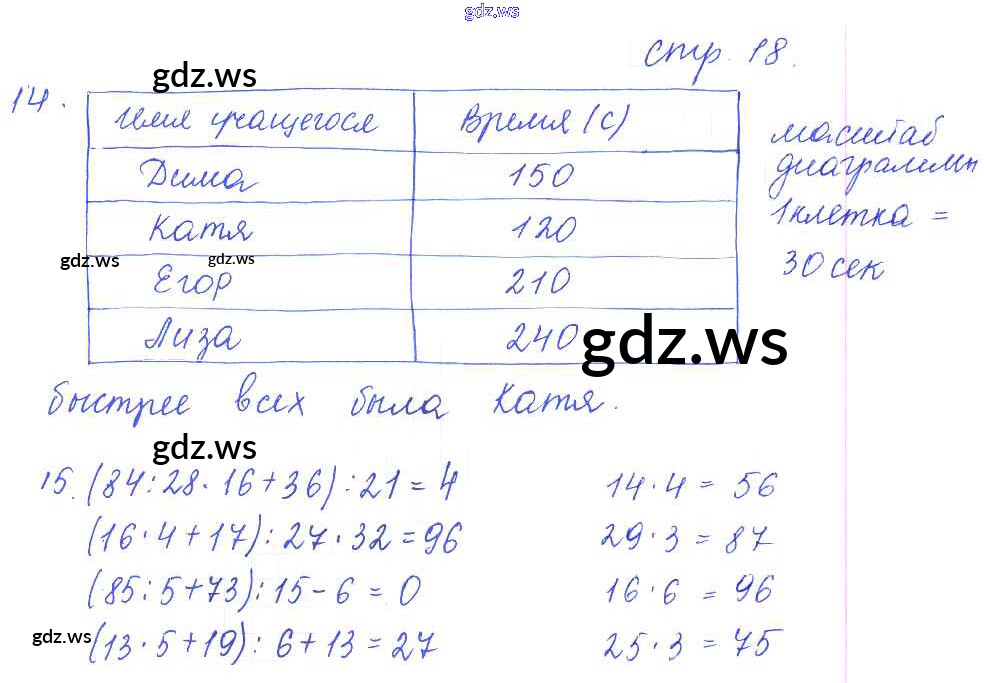 gdz.ws
стр. 18.
gdz.ws
14.
Имя учащегося Время (с)
Дима 150
Катя 120
Егор 210
Лиза 240
масштаб
диаграммы
1 клетка =
30 сек
gdz.ws
gdz.ws
gdz.ws
быстрее всех была Катя.
gdz.ws
15. (84:28·16+36):21=4 14·4=56
(16·4+17):27·32=96 29·3=87
(85:5+73):15-6=0 16·6=96
gdz.ws
(13·5+19):6+13=27 25·3=75